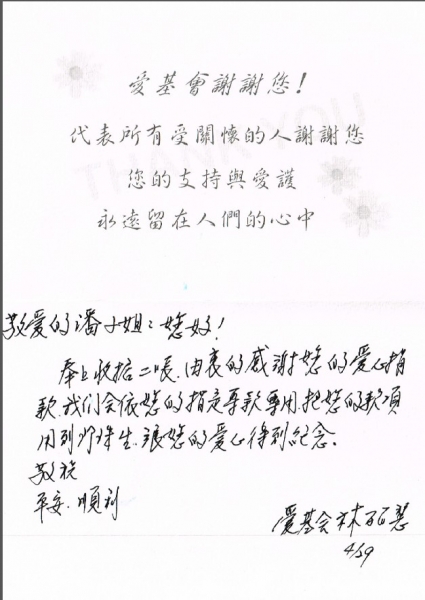 愛基會謝謝您!
代表所有受關懷的人謝謝您
您的支持與愛護
永遠留在人們的心中
THANK YOU
敬爱的潘小姐:您好!
奉上收据二張.由衷的感謝您的爱心捐
款.我们会依您的指定專款專用.把您的款項
用到 珠生.讓您的爱心得到紀念.
敬祝
平安.順利
爱基会林
4/29